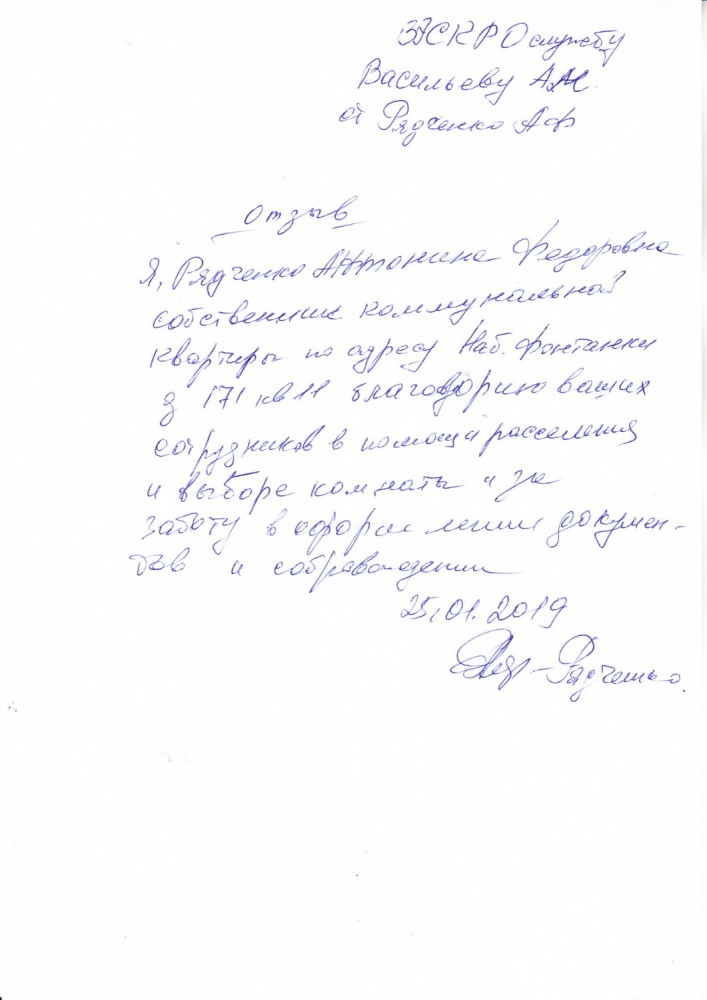 ЭСКРО службу
Васильеву А.М.
от Рядченко А Ф
Отзыв
Я, Рядченко Антонина Федоровна
собственник коммунальной
квартиры по адресу Наб. Фонтанки
д 171 кв 11 благодорию ваших
сотрудников в помощи расселения
и выборе комнаты и за
заботу в оформлении докумен-
тов и собравождении
25.01.2019
Рядченко